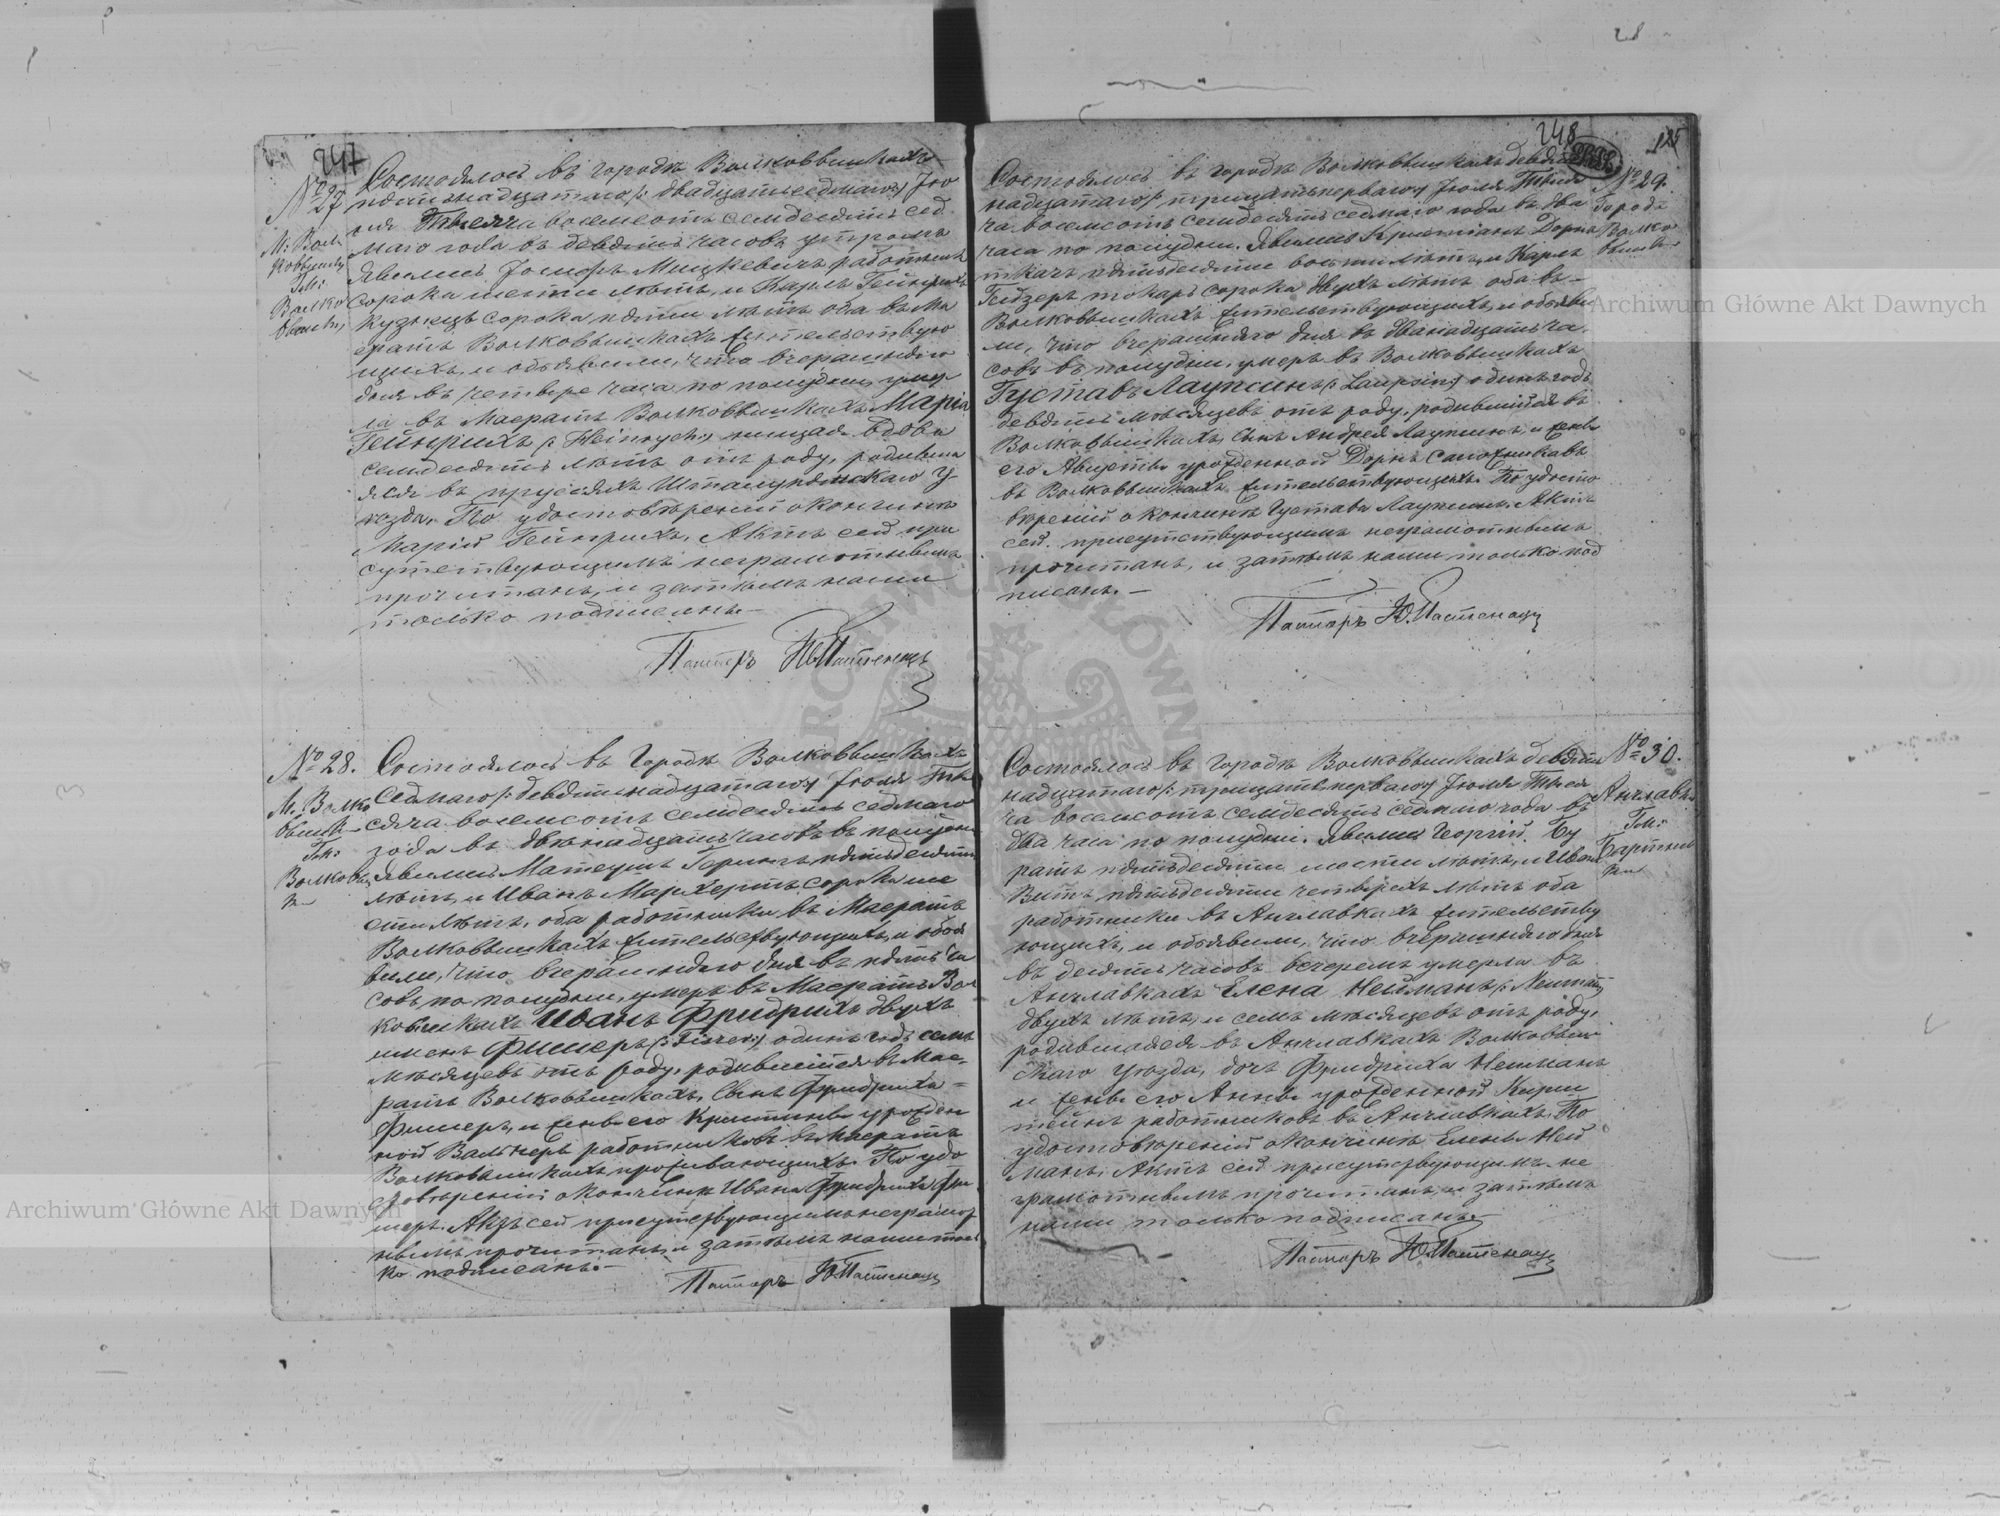 247
№ 27
М: Вол
ковышки
Гм:
Волко
вышки
Состоялось въ городѣ Волковышкахъ
пятнадцатаго /: двадцать седмаго :/ Ію
ня Тысяча восемсотъ семдесятъ сед
маго года въ девять часовъ утромъ
Явились Іосифъ Мицкевичъ работникъ
сорока шести лѣтъ, и Карлъ Гейнрихъ
кузнецъ сорока пяти лѣтъ оба въ Ма
ератъ Волковышкахъ жительствую
щихъ, и объявили, что вчерашняго
дня въ четвере часа по полудни умер
ла въ Маератъ Волковышкахъ Марія
Гейнрихъ /: Heinrych :/ нищая вдова
семдесятъ лѣтъ отъ роду, родивша
яся въ пруссяхъ Шталупянскаго у-
ѣзда. По удостовѣреніи о кончинѣ
Маріи Гейнрихъ, Актъ сей при
сутствующимъ неграмотнымъ
прочитанъ, и затѣмъ нами
только подписанъ.—
Пасторъ Ю. Пастенаци
№ 28.
М. Волко
вышк-
Гм:
Волковыш
ки
Состоялось въ Городѣ Волковышкахъ
Седмаго /: девятнадцатаго :/ Іюля Ты
сяча восемсотъ семдесятъ седмаго
года въ двѣнадцать часовъ въ полудни
Явились Матеушъ Герингъ пятьдесятъ
лѣтъ, и Иванъ Марквертъ сорока ше
сти лѣтъ, оба работники въ Маератъ
Волковышкахъ жительствующихъ, и объя
вили, что вчерашняго дня въ пять ча
совъ по полудни, умеръ въ Маератъ Вол
ковышкахъ Иванъ Фридрихъ двухъ
именъ Фишеръ /: Fiszer :/ одинъ годъ семь
мѣсяцевъ отъ роду, родившійся въ Мае-
ратъ Волковышкахъ, Сынъ Фридриха
Фишеръ, и жены его Кристины урожден
ной Вальнеръ работниковъ въ Маератъ
Волковышкахъ проживающихъ. По удо
стовѣреніи о кончинѣ Ивана Фридриха Фи
шеръ. Актъ сей присутствующимъ неграмот
нымъ прочитанъ, и затѣмъ нами толь
ко подписанъ.—
Пасторъ Ю. Пастенаци
28
248
125
№ 29.
Городъ
Волко
вышки
Состоялось въ городѣ Волковышкахъ девят
надцатаго /: тридцать перваго :/ Іюля Тыся
ча восемсотъ семдесятъ седмаго года въ два
часа по полудни. Явились Кристіанъ Дорнъ
ткачъ пятьдесяти восми лѣтъ, и Карлъ
Гейдзеръ токарь сорока двухъ лѣтъ оба въ -
Волковышкахъ жительствующихъ, и объяви
ли, что вчерашняго дня въ двѣнадцать ча
совъ въ полудни, умеръ въ Волковышкахъ
Густавъ Лаупсинъ /: Laupsin :/ одинъ годъ
девять мѣсяцевъ отъ роду, родившійся въ
Волковышкахъ, сынъ Андрея Лаупсинъ, и жены
его Августы урожденной Дорнъ сапожниковъ
въ Волковышкахъ жительствующихъ. По удосто
вѣреніи о кончинѣ Густава Лаупсинъ. Актъ
сей присутствующимъ неграмотнымъ
прочитанъ, и затѣмъ нами только под
писанъ.—
Пасторъ Ю. Пастенаци
№ 30.
Анчлавки
Гм:
Состоялось въ городѣ Волковышкахъ девят
надцатаго /: тридцать перваго :/ Іюля Тыся
ча восемсотъ семдесятъ седмаго года въ
два часа по полудни. Явились Георгій Бу
ратъ пятьдесяти шести лѣтъ, и Иванъ
Витъ пятьдесяти четырехъ лѣтъ оба
работники въ Анчлавкахъ жительству
ющихъ, и объявили, что вчерашняго дня
въ десять часовъ вечеромъ умерла въ
Анчлавкахъ Елена Нейманъ /: Neuman :/
двухъ лѣтъ, и семь мѣсяцевъ отъ роду,
родившаяся въ Анчлавкахъ Волковыш
скаго уѣзда, дочь Фридриха Нейманъ
и жены его Анны урожденной Кирш
тейнъ работниковъ въ Анчлавкахъ. По
удостовѣреніи о кончинѣ Елены Ней
манъ, Актъ сей присутствующимъ не
грамотнымъ прочитанъ, и затѣмъ
нами только подписанъ.—
Пасторъ Ю. Пастенаци
Archiwum Główne Akt Dawnych
Archiwum Główne Akt Dawnych